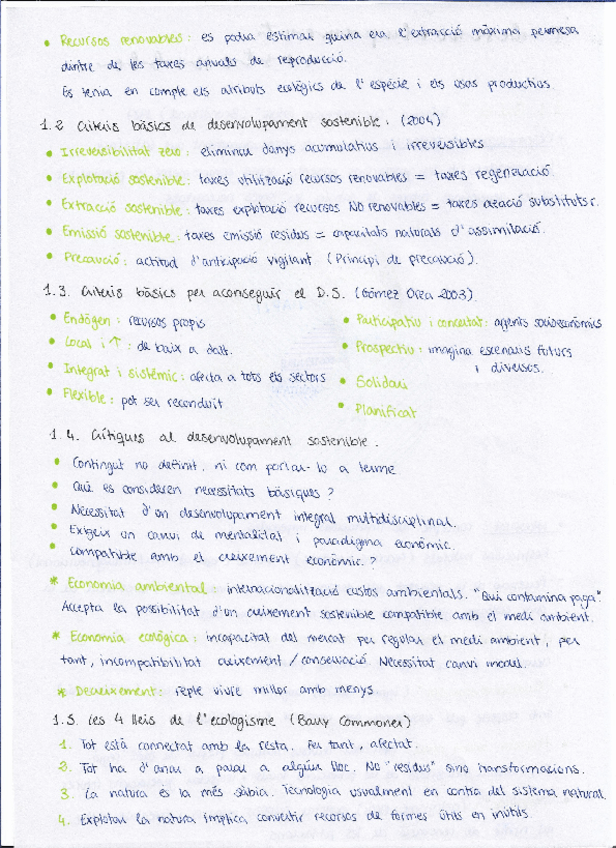 • Recursos renovables: es podia estimar quina era l'extracció màxima permesa
dintre de les taxes anuals de reproducció.
Es tenia en compte els atributs ecològics de l'espècie i els usos productius.
1.2 Criteris bàsics de desenvolupament sostenible. (2004)
• Irreversibilitat zero: eliminar danys acumulatius i irreversibles
• Explotació sostenible: taxes utilització recursos renovables = taxes regeneració
• Extracció sostenible: taxes explotació recursos NO renovables = taxes creació substituts r.
• Emissió sostenible: taxes emissió residus = capacitats naturals d'assimilació.
• Precaució: actitud d'anticipació vigilant (Principi de precaució).
1.3. Criteris bàsics per aconseguir el D.S. (Gómez Orea 2003)
• Endògen: recursos propis
• Local i ↑: de baix a dalt.
• Integrat i sistèmic: afecta a tots els sectors
• Flexible: pot ser reconduit
• Participatiu i concertat: agents socioeconòmics
• Prospectiu: imagina escenaris futurs
i diversos.
• Solidari
• Planificat
1.4. Crítiques al desenvolupament sostenible.
• Contingut no definit, ni com portar-lo a terme.
• Què es consideren necessitats bàsiques?
• Necessitat d'un desenvolupament integral multidisciplinar.
• Exigeix un canvi de mentalitat i paradigma econòmic.
• Compatible amb el creixement econòmic?
* Economia ambiental: internacionalització costos ambientals. "Qui contamina paga".
Accepta la possibilitat d'un creixement sostenible compatible amb el medi ambient.
* Economia ecològica: incapacitat del mercat per regular el medi ambient, per
tant, incompatibilitat creixement / conservació. Necessitat canvi model.
* Decreixement: repte viure millor amb menys
1.5. les 4 lleis de l'ecologisme (Bary Commoner)
1. Tot està connectat amb la resta. Per tant, afectat.
2. Tot ha d'anar a parar a algun lloc. No "residus" sino transformacions.
3. La natura és la més sàbia. Tecnologia usualment en contra del sistema natural.
4. Explotar la natura implica convertir recursos de formes útils en inútils.